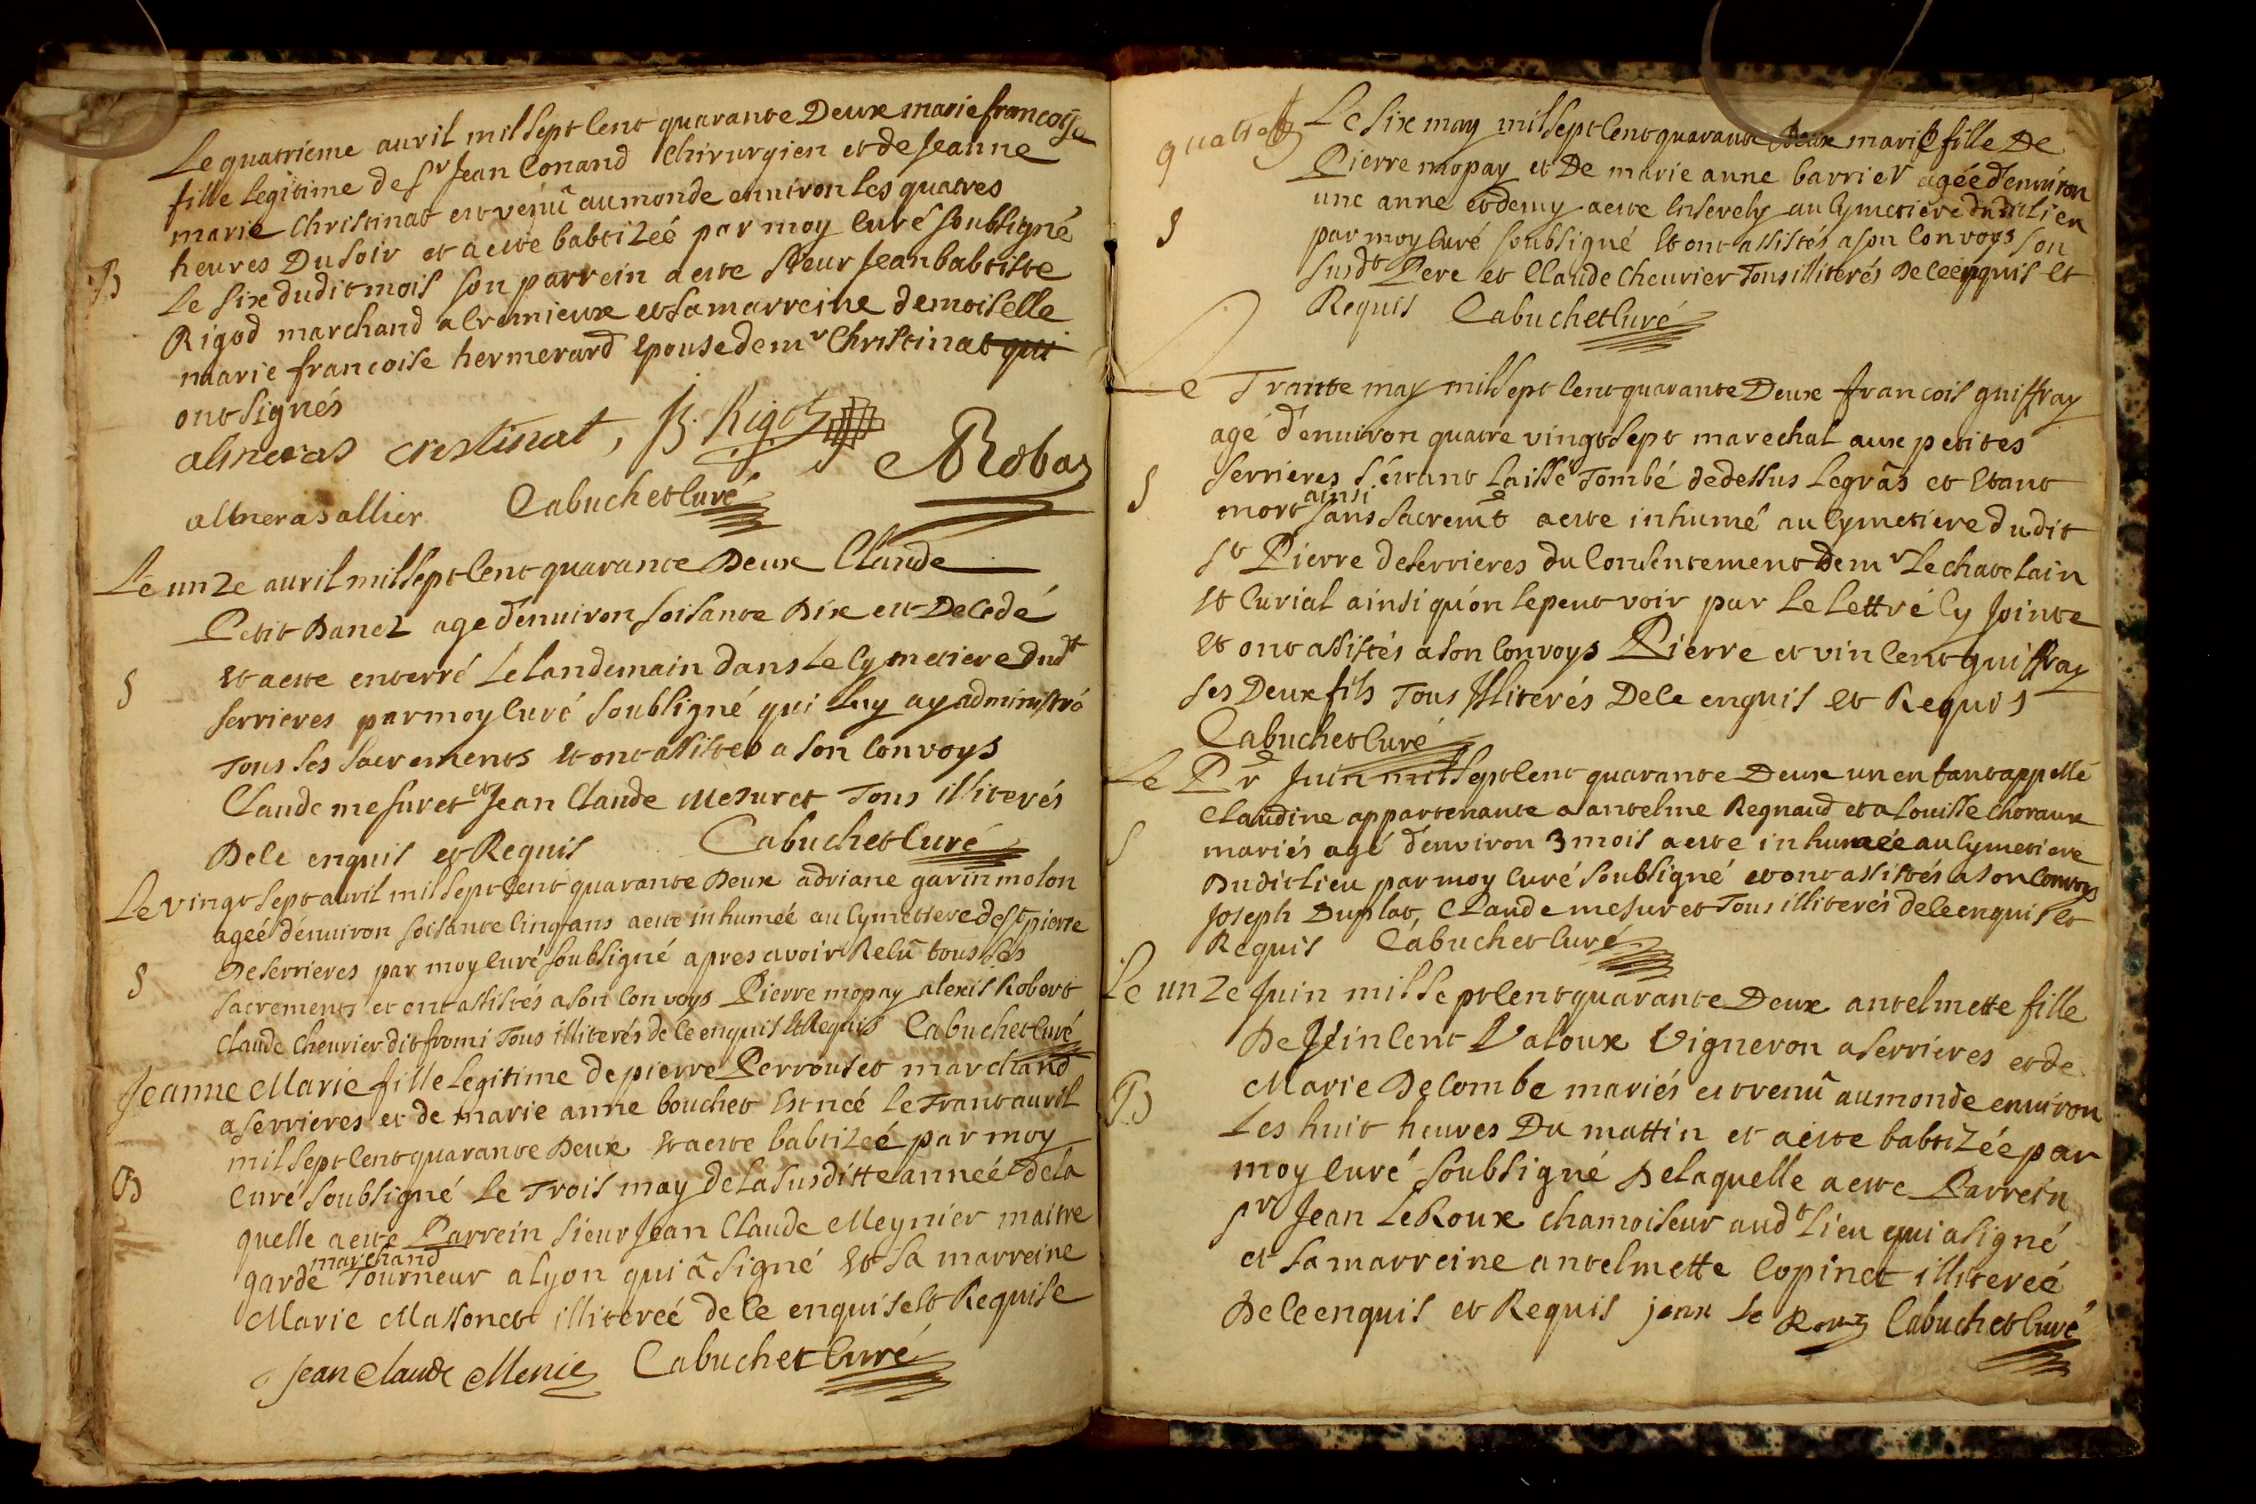 Le quatrieme auvril mil sept Cent quarante Deux marie francoise
fille legitime de Sr Jean Conand Chirurgien et de Jeanne
marie Christinat est venû au monde enuiron les quatres
heures Du soir et a este babtizeé par moy Curé soubsigné
B
Le six dudit mois son parrein a este sieur Jean babtiste
Rigod marchand a Cremieux et sa marreine demoiselle
marie francoise hermerard Epouse de mr Christinat qui
ont signés
crestinat, B. Rigod
Robas
allier Cabuchet Curé
Le unze auvril mil sept Cent quarante Deux Claude
Petit Danez agé d'enuiron soisante Dix est Decedé
et a este enterré Le landemain dans Le Cymetiere dudt
S
serrieres par moy Curé soubsigné qui Luy ay administré
Tous ses sacrements et ont assistes a son Convoys
Claude mesuret et Jean Claude Mesuret Tous illiterés
De Ce enquis et Requis Cabuchet Curé
Le vingt sept auvril mil sept Cent quarante Deux adriane garin molon
ageé d'enuiron soisante Cinq ans a este inhumeé au Cymetiere de st pierre
S
De serrieres par moy Curé soubsigné apres avoir Relû tous ses
sacrements et ont assistés a son Convoys Pierre mopay alexis Robert
Claude Cheurier dit fromi Tous illiterés de Ce enquis et Requis Cabuchet Curé
Jeanne Marie fille Legitime de pierre Perrouset marchand
a serrieres et de marie anne bouchet Est neé le Trant auvril
mil sept Cent quarante Deux et a este babtizeé par moy
B
Curé soubsigné Le Trois may de La susditte anneé de la
quelle a este Parrein sieur Jean Claude Meynier maitre
marchand
garde Tourneur a Lyon qui â signé et sa marreine
Marie Massonet illitereé de Ce enquise et Requise
Jean Claude Menie Cabuchet Curé
Le six may mil sept Cent quarante Deux marie fille De
Pierre mopay et De marie anne barrier ageé d'enuiron
une anne et demy a este Ensevely au Cymetiere dudit lieu
S
par moy Curé soubsigné et ont assistés a son Convoys son
susdt Pere et Claude Cheurier Tous illiterés De Ce enquis et
Requis Cabuchet Curé
Le Trante may mil sept Cent quarante Deux francois guiffray
agé d'enuiron quatre vingt sept marechal aux petites
S
serrieres s'étant Laissé Tombé de dessus Le grâs et Etant
ainsi
mort sans sacremt a este inhumé au Cymetiere dudit
St Pierre de serrieres du Consentement de mr Le chatelain
et Curial ainsi qu'on le peut voir par Le Lettré Cy Jointe
et ont assistés a son Convoys Pierre et vincent guiffray
ses Deux fils Tous Illiterés De Ce enquis et Requis
Cabuchet Curé
Le Pr Juin mil sept Cent quarante Deux un enfant appellé
Claudine appartenante a antelme Regnaud et a Louisse Choraux
S
mariés agé d'environ 3 mois a este inhumeé au Cymetiere
Dudit lieu par moy Curé soubsigné et ont assistés a son Convoys
Joseph Duplat, Claude mesuret Tous illiterés de Ce enquis et
Requis Cabuchet Curé
Le unze Juin mil sept Cent quarante Deux antelmette fille
De Vincent Valoux Vigneron a serrieres et de
B
Marie Decombe mariés est venû au monde enuiron
Les huit heures Du mattin et a este babtizée par
moy Curé soubsigné De laquelle a este Parrein
sr Jean Le Roux chamoiseur audt Lieu qui a signé
et sa marreine antelmette Copinet illitereé
De Ce enquis et Requis jean le Roux Cabuchet Curé